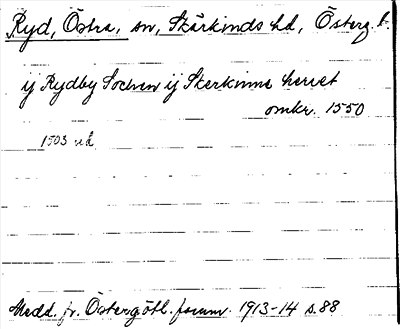 Ryd, Östra, sn, Skärkinds hd, Österg. l.
ij Rydby Sochen ij Skerkinna herret
omkr. 1550
1503 nå
Medd. fr. Östergötl. fornm. 1913-14 s. 88